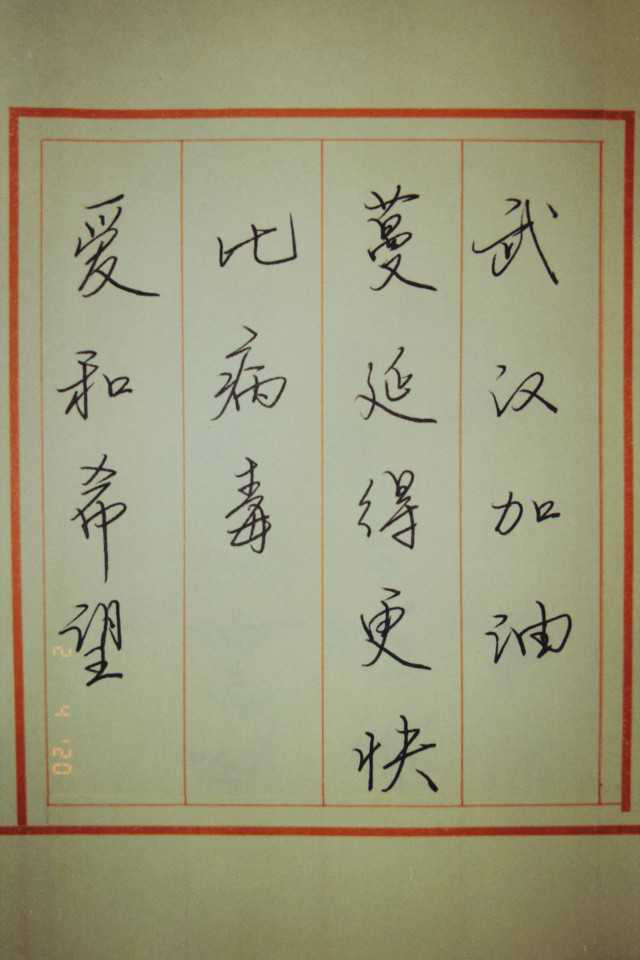 爱和希望
比病毒
蔓延得更快
武汉加油
2 4 '20